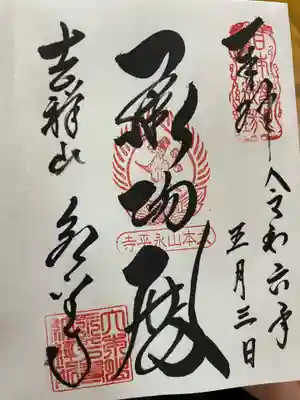 奉拝
令和六年
五月三日
承陽殿
大本山永平寺
吉祥山
永平寺